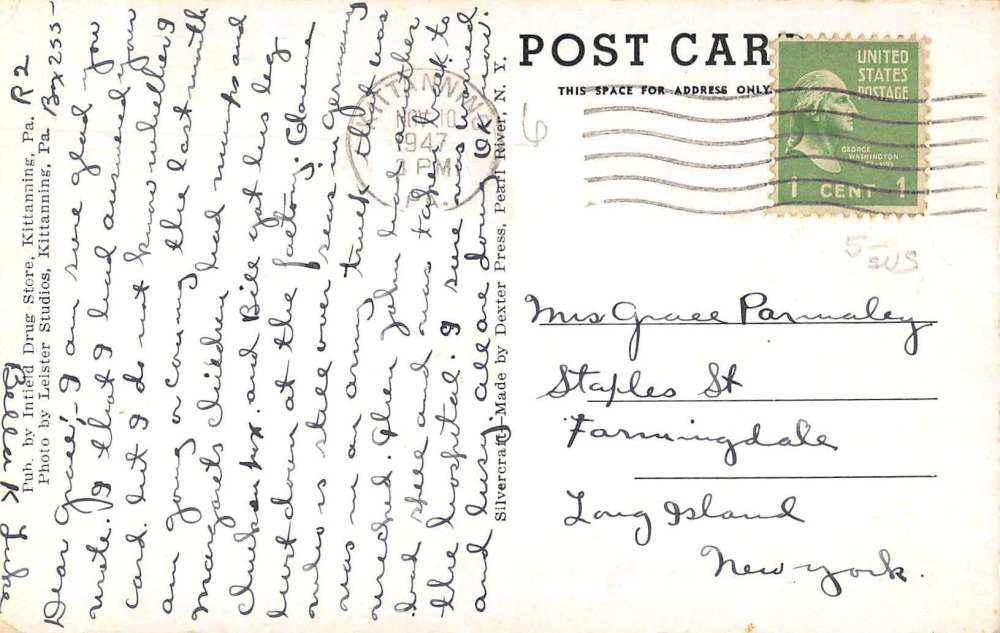 POST CARD
THIS SPACE FOR ADDRESS ONLY.
UNITED
STATES
POSTAGE
GEORGE
WASHINGTON
1 CENT 1
KITTANNING
NOV 10
1947
3 PM
PA.
6
5-
SUS
Mrs Grace Parmaley
Staples St
Farmingdale
Long Island
New York.
Dear Grace:- I am sure glad you
wrote. I thot I had answered your
card. but I do not know whether I
am going or coming the last month
Margarets children had mumps and
chicken pox. and Bill got his leg
hurt down at the factory. Clare
who is still over seas in Germany
was in an army truck that was
wrecked. then John had another
bad spell and was taken back to
the hospital. I sure was worried
and busy. all are doing OK now.
Bella K
R 2
Box 255-
Pub. by Infield Drug Store, Kittanning, Pa.
Photo by Leister Studios, Kittanning, Pa.
Silvercraft Made by Dexter Press, Pearl River, N. Y.